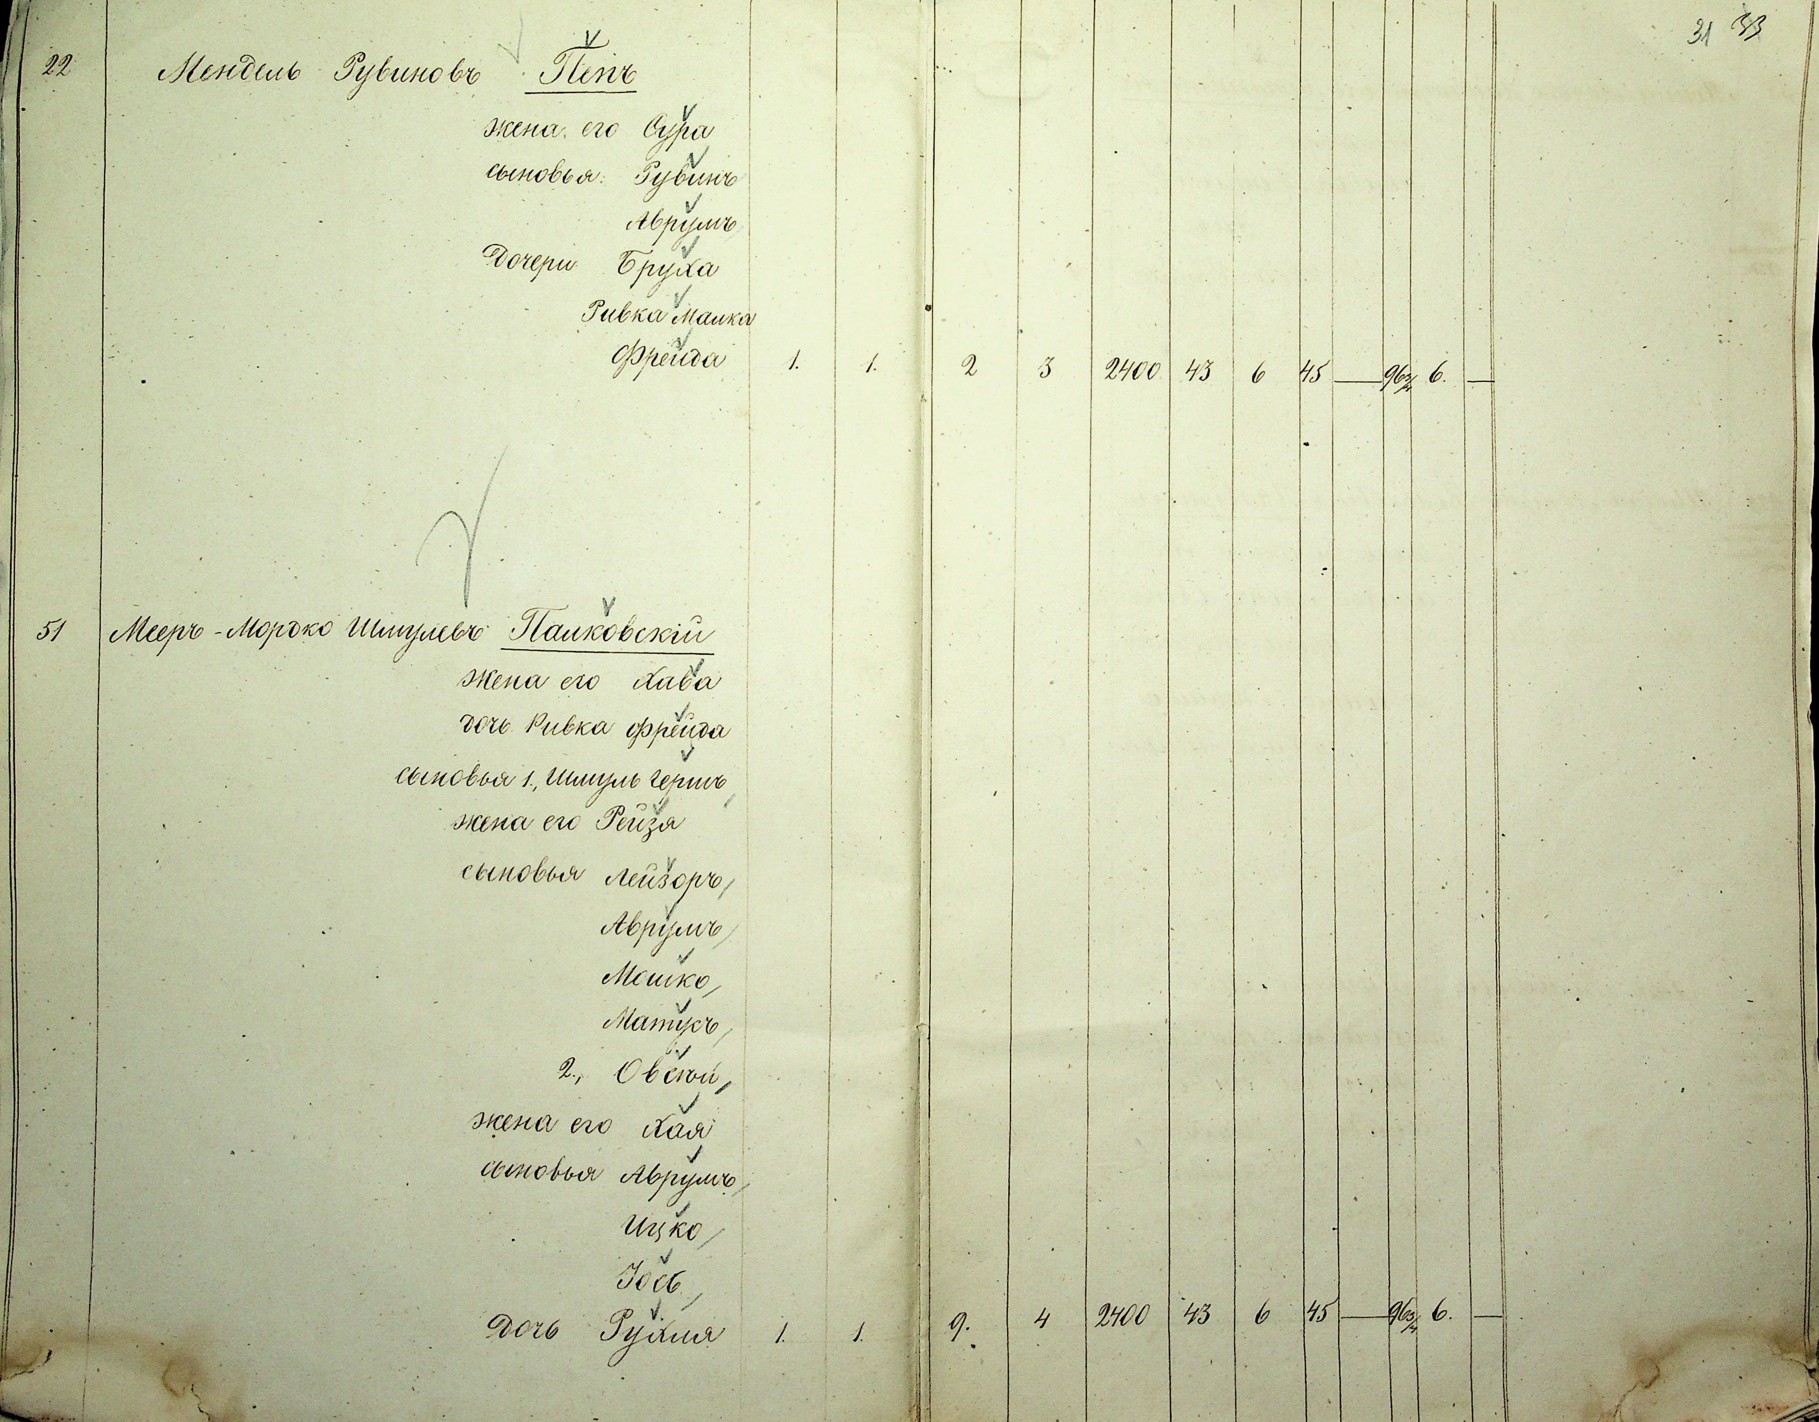 31 33
22 Мендель Рувиновъ Пепъ
жена его Сура
сыновья: Рувинъ
Аврумъ
Дочери Бруха
Ривка Малка
Фрейда 1. 1. 2 3 2400 43 6 45 — 96¾ 6. —
51 Мееръ-Мордко Шмулевъ Палковскій
жена его Хава
дочь Ривка Фрейда
сыновья 1., Шмуль Гершъ
жена его Рейзя
сыновья Лейзоръ,
Аврумъ,
Мошко,
Матусъ,
2., Овсей,
жена его Хая
сыновья Аврумъ,
Ицко,
Іось,
Дочь Рухля 1. 1. 9. 4 2400 43 6 45 — 96¾ 6. —